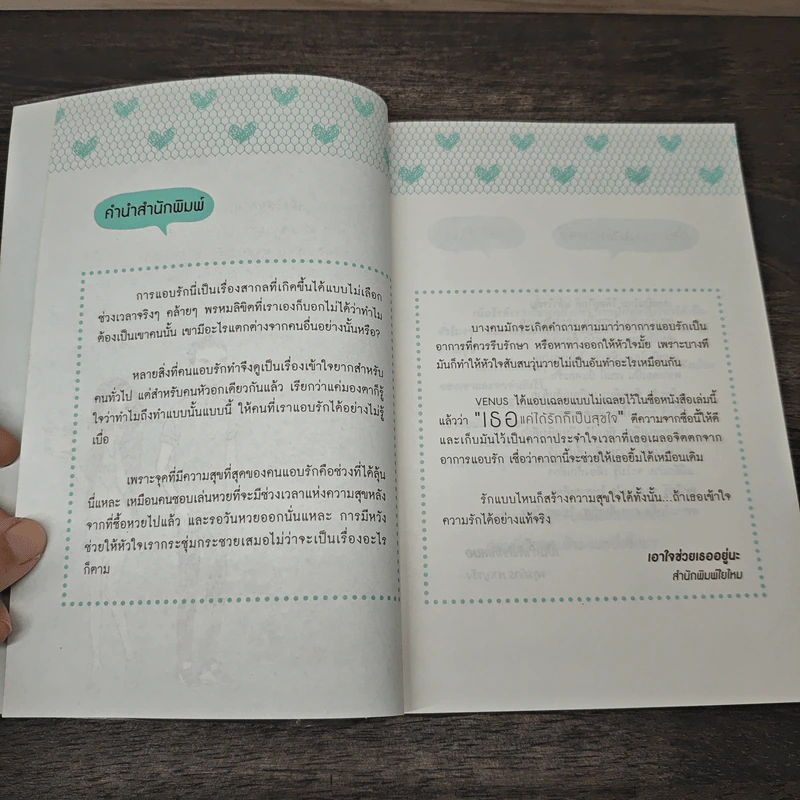 คำนำสำนักพิมพ์
การแอบรักนี่เป็นเรื่องสากลที่เกิดขึ้นได้แบบไม่เลือก
ช่วงเวลาจริงๆ คล้ายๆ พรหมลิขิตที่เราเองก็บอกไม่ได้ว่าทำไม
ต้องเป็นเขาคนนั้น เขามีอะไรแตกต่างจากคนอื่นอย่างนั้นหรือ?
หลายสิ่งที่คนแอบรักทำจึงดูเป็นเรื่องเข้าใจยากสำหรับ
คนทั่วไป แต่สำหรับคนหัวอกเดียวกันแล้ว เรียกว่าแค่มองตาก็รู้
ใจว่าทำไมถึงทำแบบนั้นแบบนี้ ให้คนที่เราแอบรักได้อย่างไม่รู้
เบื่อ
เพราะจุดที่มีความสุขที่สุดของคนแอบรักคือช่วงที่ได้ลุ้น
นี่แหละ เหมือนคนชอบเล่นหวยที่จะมีช่วงเวลาแห่งความสุขหลัง
จากที่ซื้อหวยไปแล้ว และรอวันหวยออกนั่นแหละ การมีหวัง
ช่วยให้หัวใจเรากระชุ่มกระชวยเสมอไม่ว่าจะเป็นเรื่องอะไร
ก็ตาม
บางคนมักจะเกิดคำถามตามมาว่าอาการแอบรักเป็น
อาการที่ควรรีบรักษา หรือหาทางออกให้หัวใจมั้ย เพราะบางที
มันก็ทำให้หัวใจสับสนวุ่นวายไม่เป็นอันทำอะไรเหมือนกัน
VENUS ได้แอบเฉลยแบบไม่เฉลยไว้ในชื่อหนังสือเล่มนี้
แล้วว่า "เธอ แค่ได้รักก็เป็นสุขใจ" ตีความจากชื่อนี้ให้ดี
และเก็บมันไว้เป็นคาถาประจำใจเวลาที่เธอเผลอจิตตกจาก
อาการแอบรัก เชื่อว่าคาถานี้จะช่วยให้เธอยิ้มได้เหมือนเดิม
รักแบบไหนก็สร้างความสุขใจได้ทั้งนั้น...ถ้าเธอเข้าใจ
ความรักได้อย่างแท้จริง
เอาใจช่วยเธออยู่นะ
สำนักพิมพ์ใยไหม